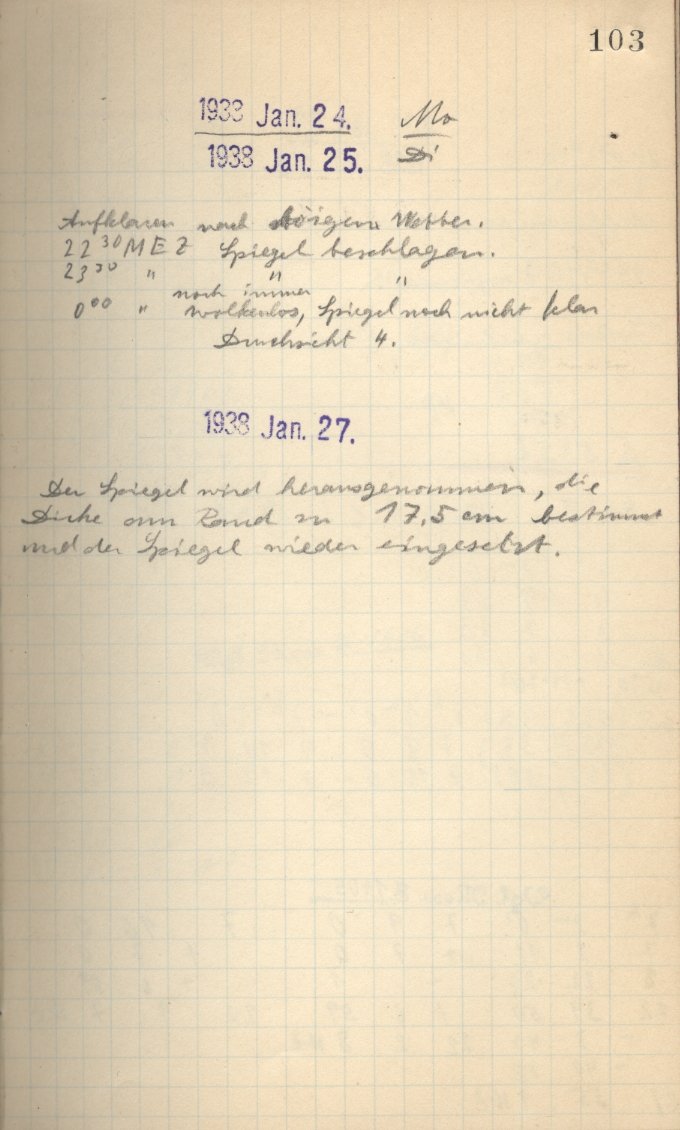 103
1938 Jan. 24. Mo
1938 Jan. 25. Di
Aufklaren nach böigem Wetter.
22 30 MEZ Spiegel beschlagen.
23 30 " " "
noch immer
0 00 " wolkenlos, Spiegel noch nicht klar
Durchsicht 4.
1938 Jan. 27.
Der Spiegel wird herausgenommen, die
Dicke am Rand zu 17,5 cm bestimmt
und der Spiegel wieder eingesetzt.